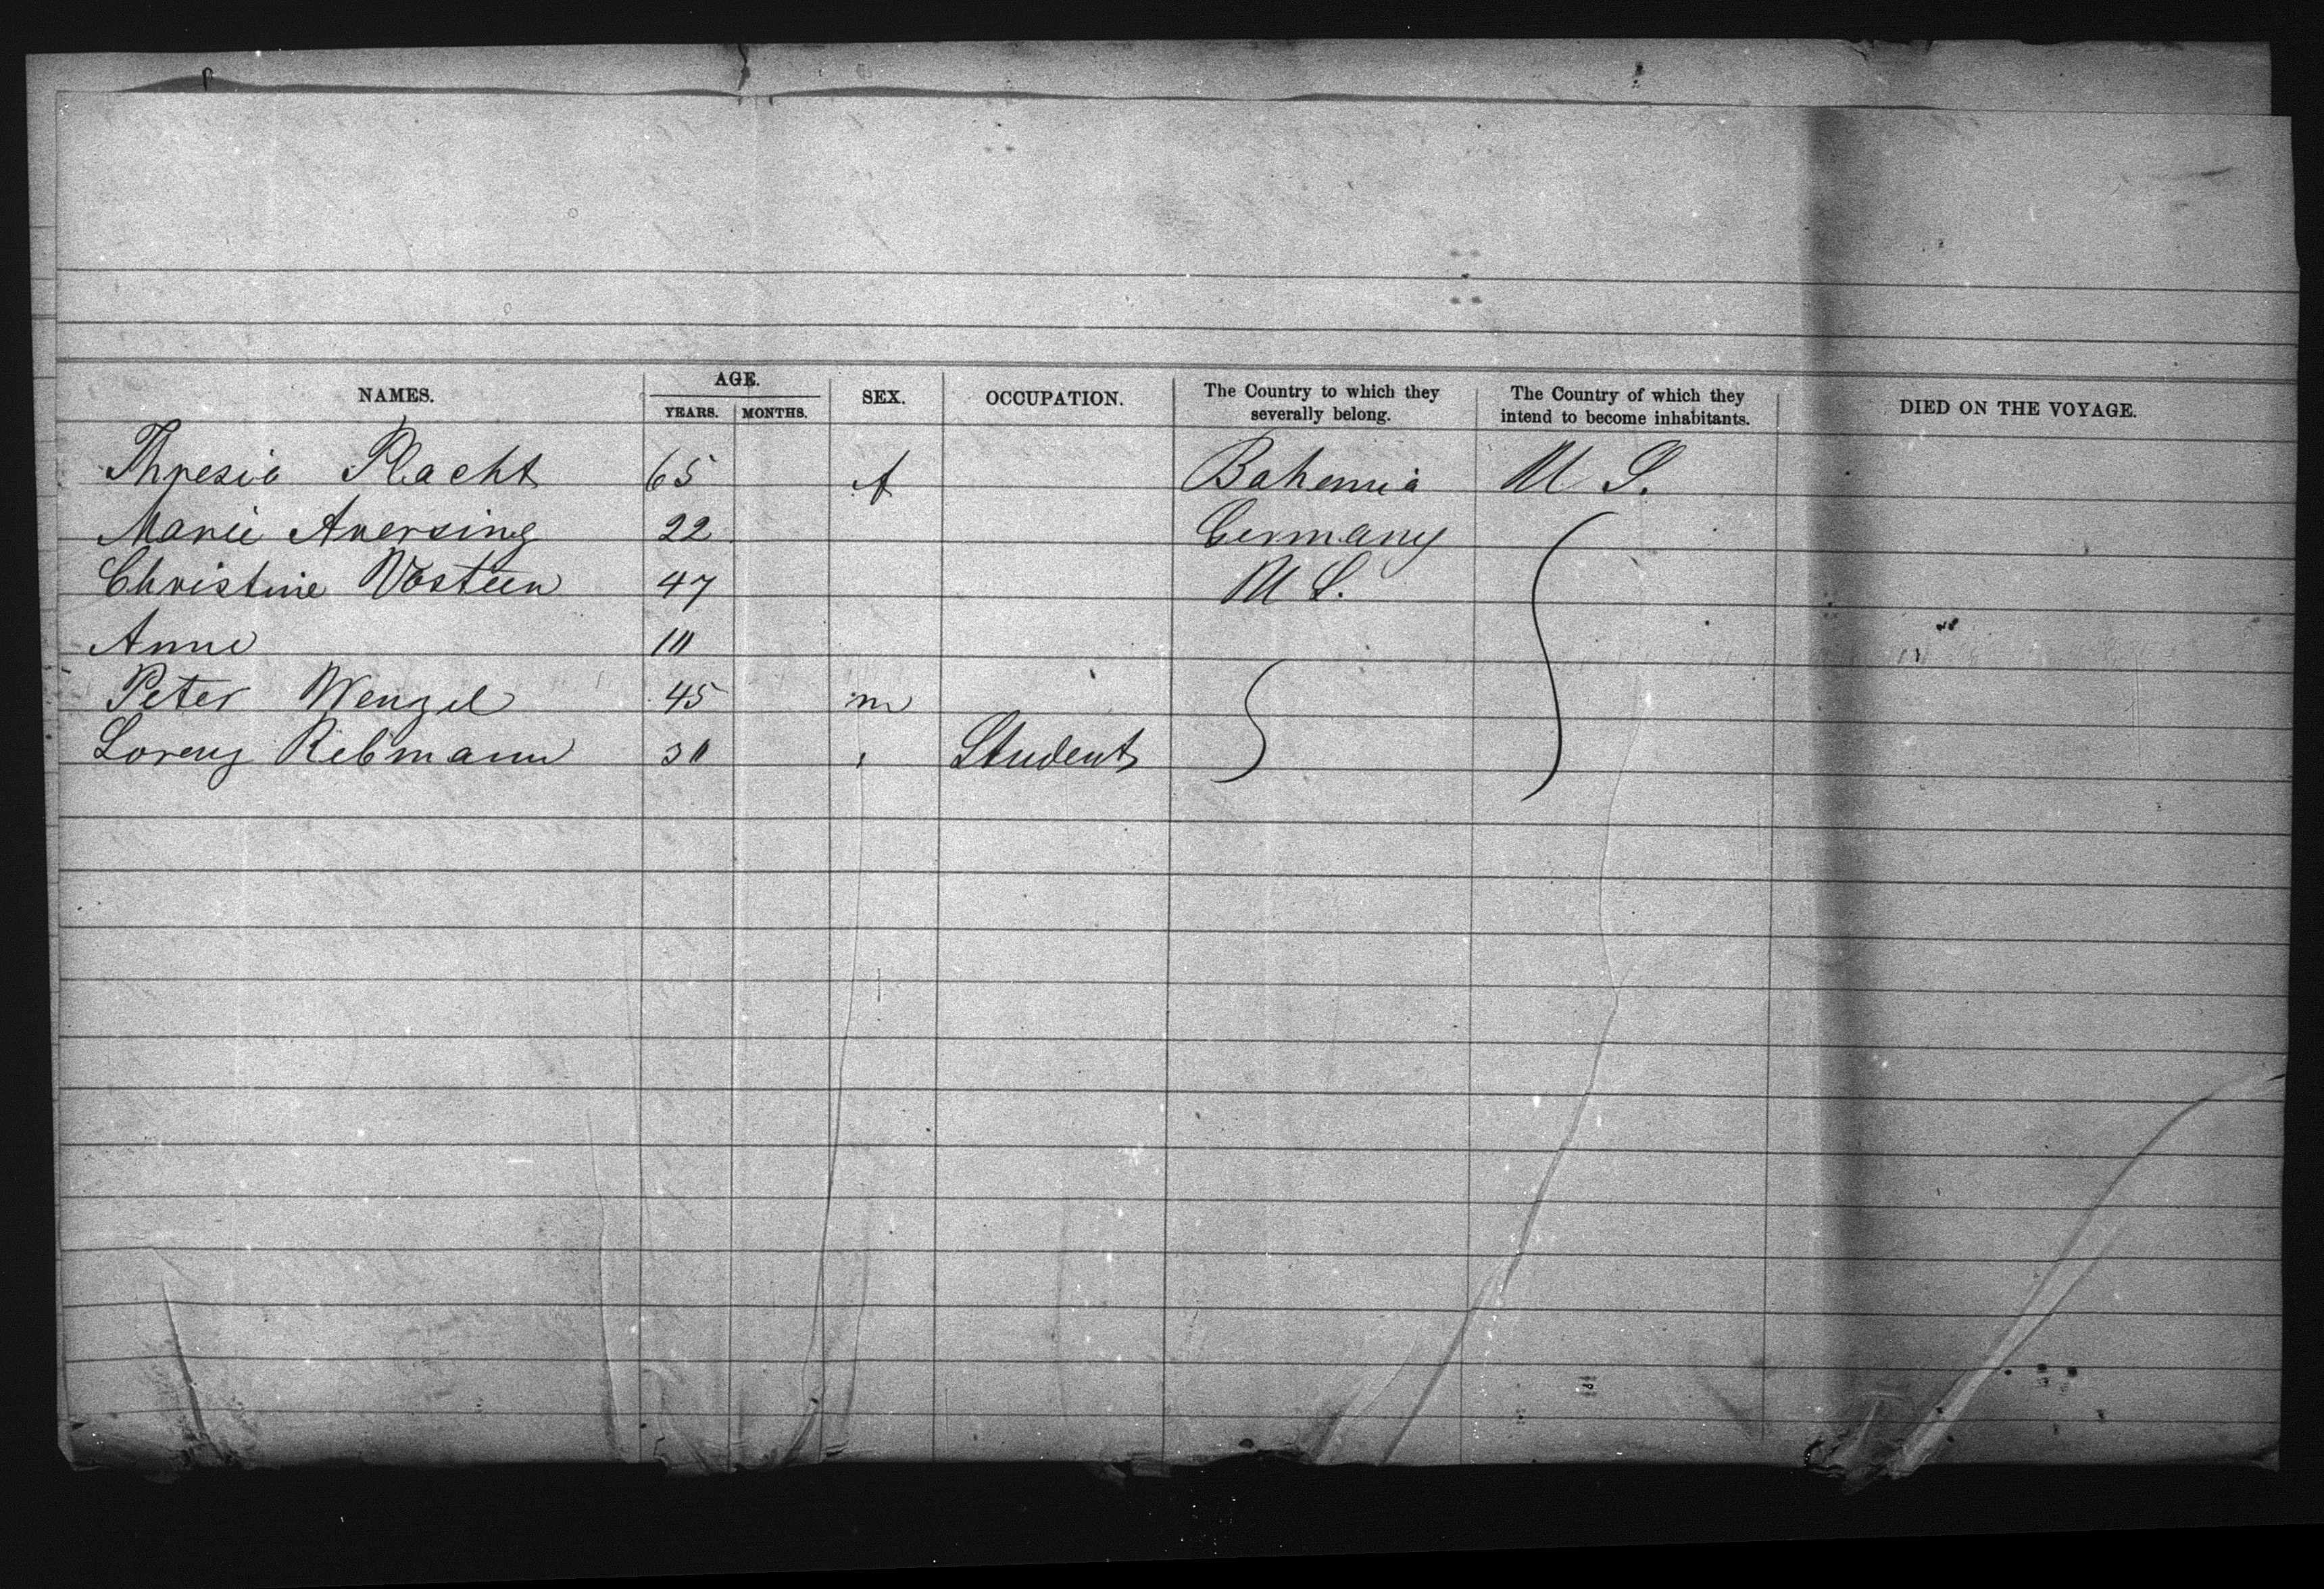 NAMES. AGE. YEARS. MONTHS. SEX. OCCUPATION. The Country to which they severally belong. The Country of which they intend to become inhabitants. DIED ON THE VOYAGE.
Thresia Placht 65 f Bahemia U S.
Marie Aversing 22 Germany
Christine Vosteen 47 U S.
Anne 10
Peter Wenzel 45 m
Lorenz Rebmann 30 Student